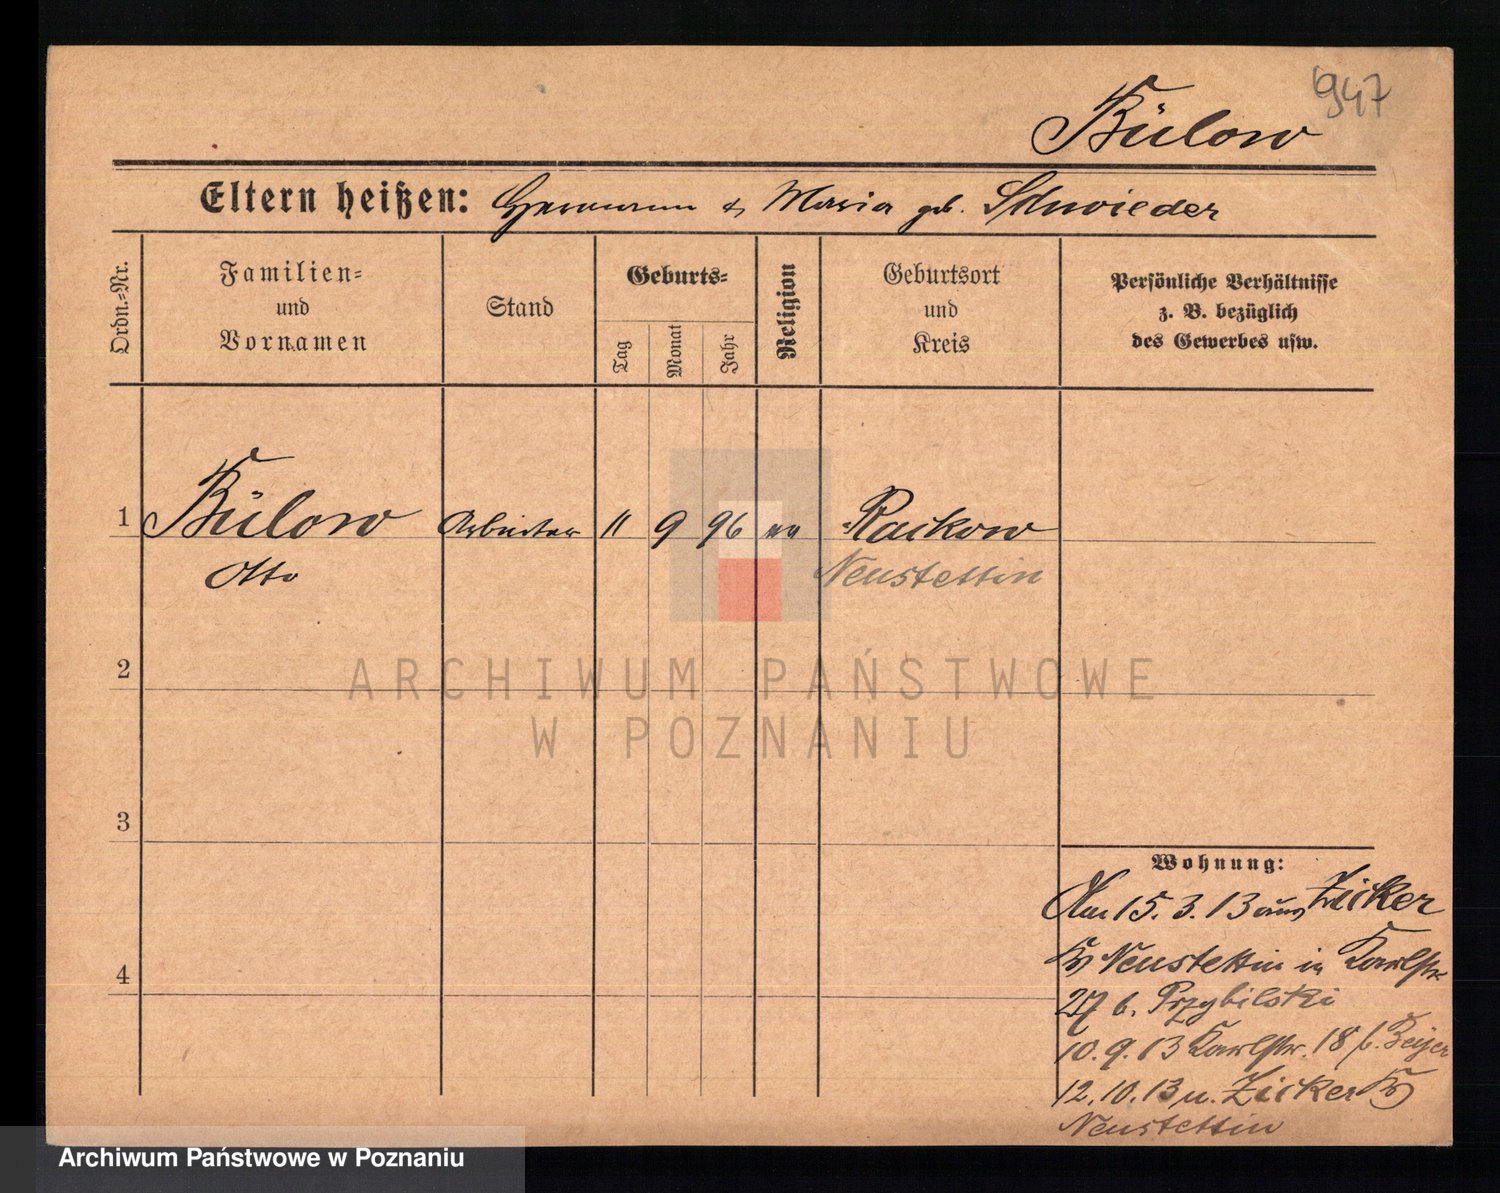 947
Bülow
Eltern heißen: Hermann & Maria geb. Schwieder
Ordn.-Nr.
Familien-
und
Vornamen
Stand
Geburts-
Tag
Monat
Jahr
Religion
Geburtsort
und
Kreis
Persönliche Verhältnisse
z. B. bezüglich
des Gewerbes usw.
1 Bülow Arbeiter 11 9 96 Rackow
Otto Neustettin
2
3
4
Wohnung:
Am 15. 3. 13 aus Zicker
Kr Neustettin in Karlstr
27 b. Przybilski
10. 9. 13 Karlstr. 18 b. Beijer
12. 10. 13 n. Zicker Kr
Neustettin
ARCHIWUM PAŃSTWOWE
W POZNANIU
Archiwum Państwowe w Poznaniu